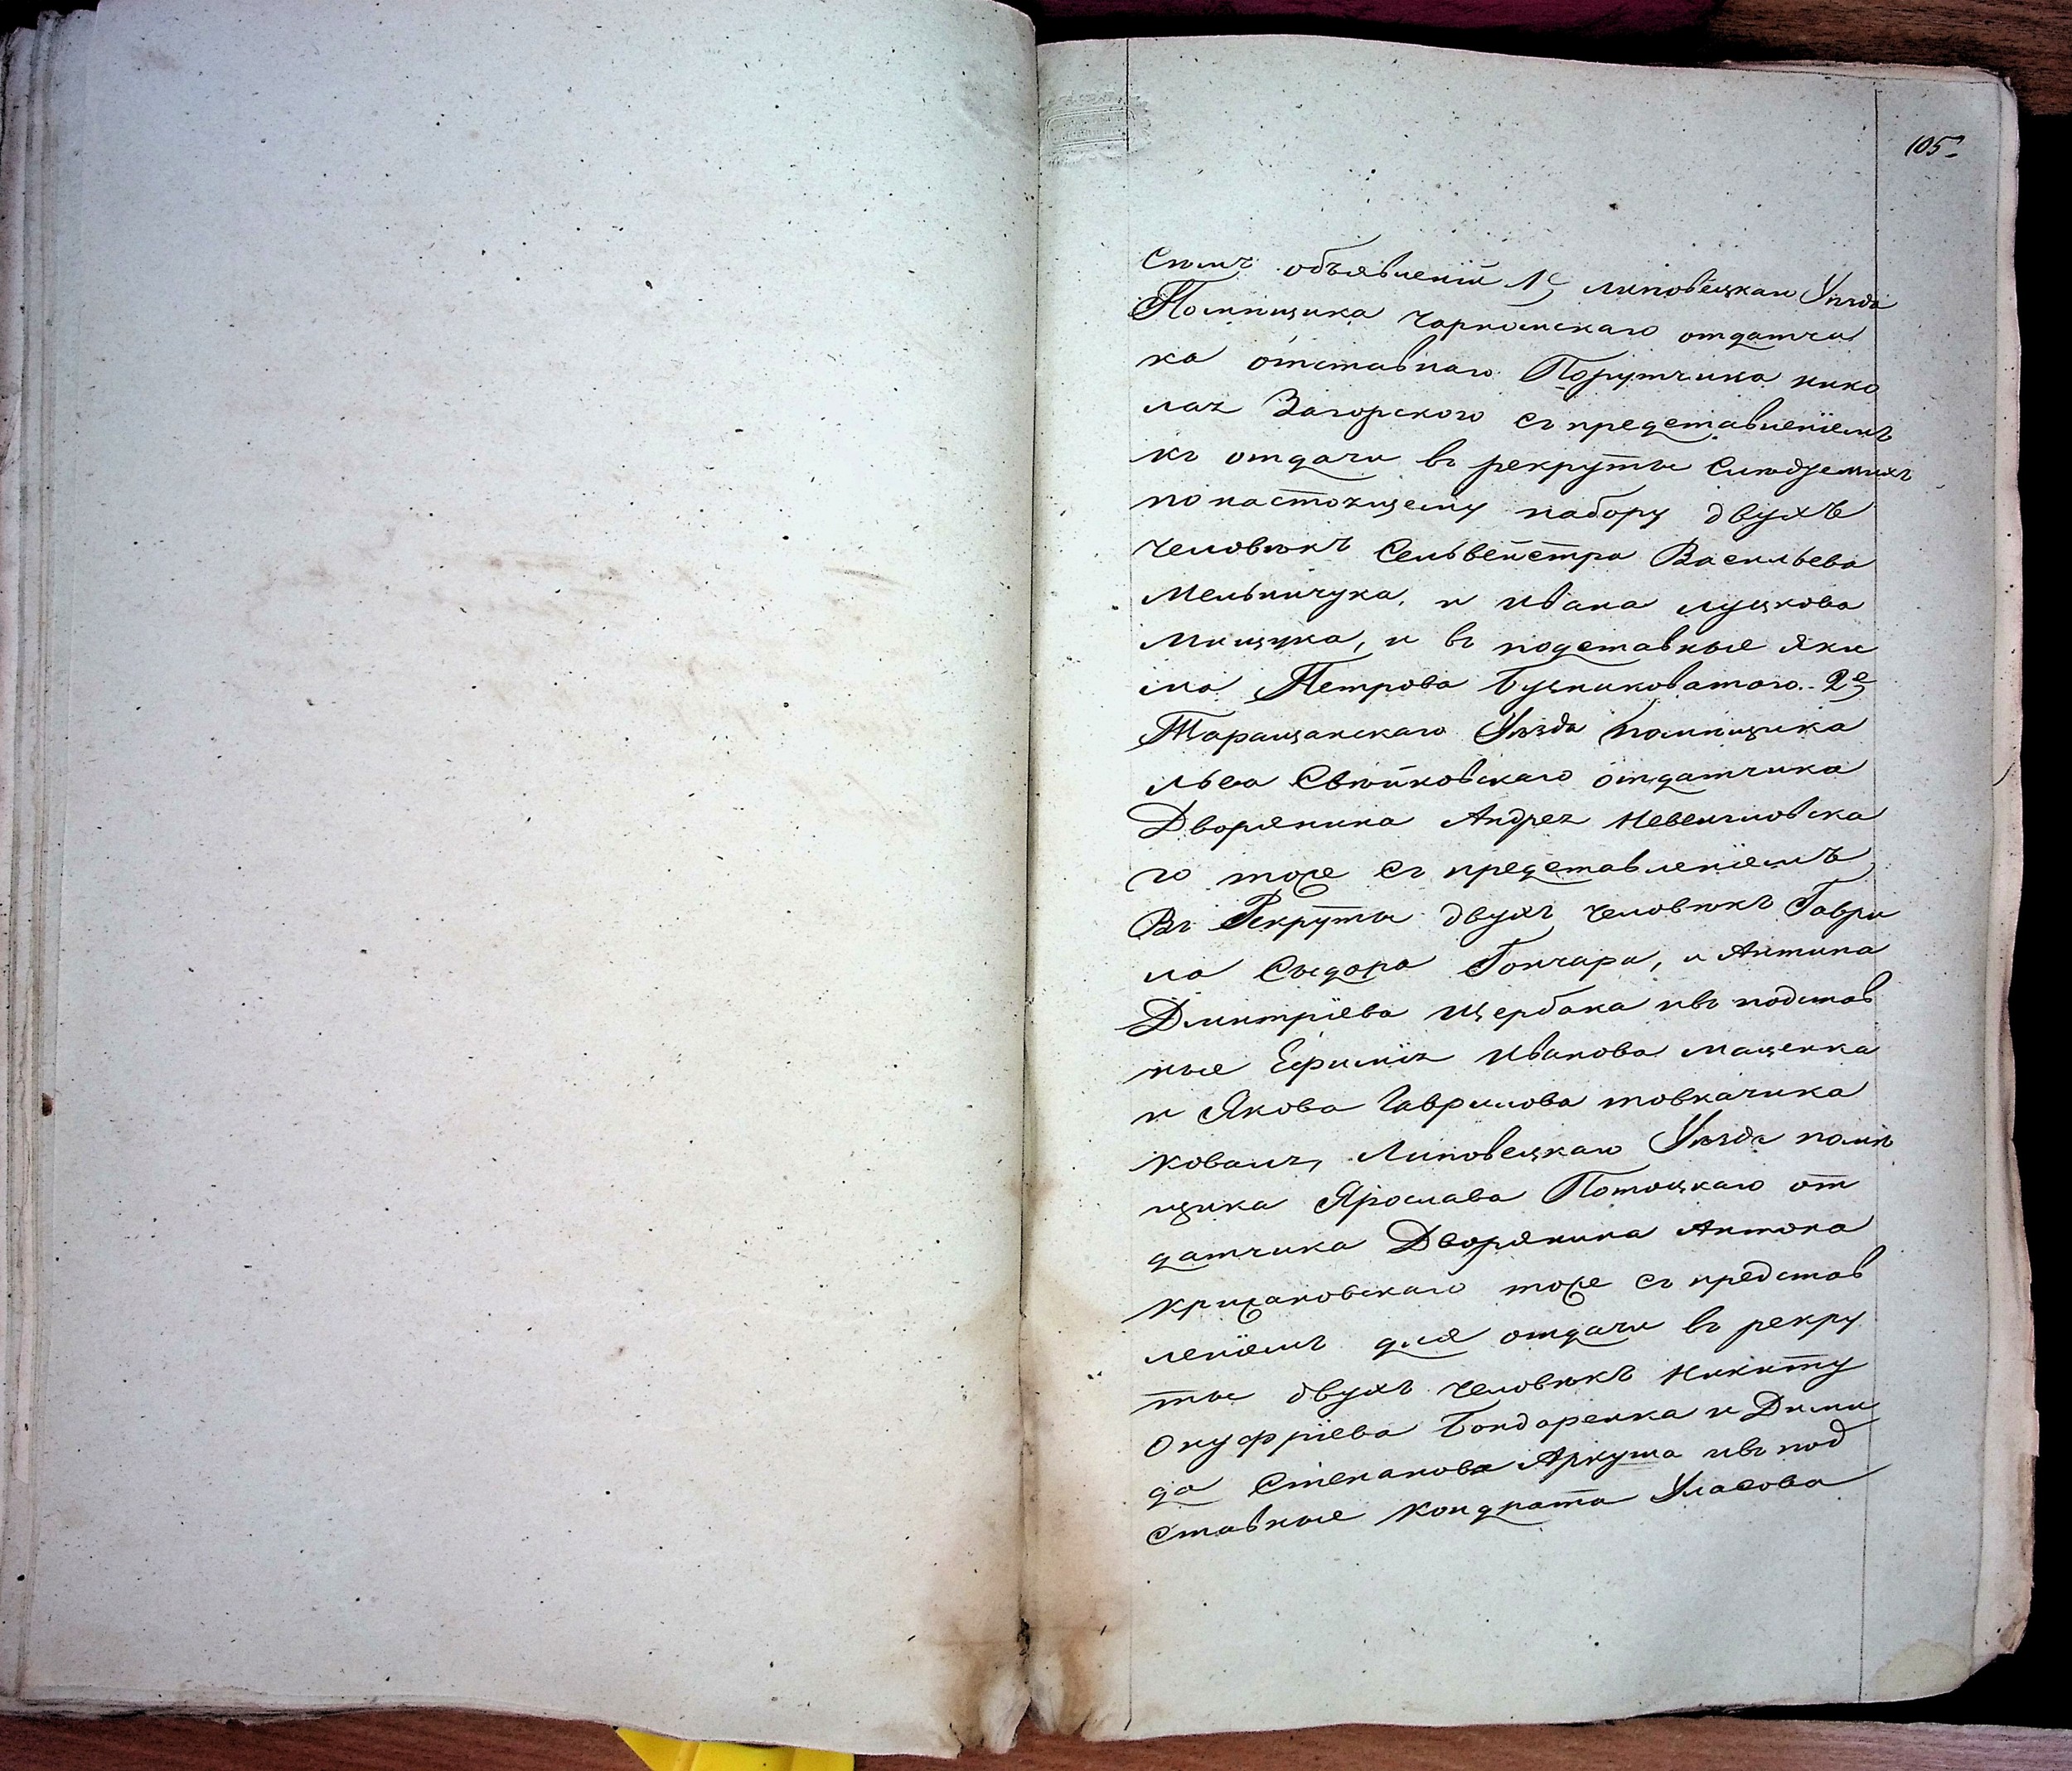 105.
объявленiи 1е Липовецкаго Уѣзда
Помѣщика Чарномскаго отдатчи
ка отставнаго Порутчика Нико
лая Загорского съ представленiемъ
къ отдачи въ рекруты слѣдуемыхъ
по настоящему набору двухъ
человѣкъ Сельвестра Васильева
Мельничука, и Ивана Луцкова
Мищука, и въ подставные Яки
ма Петрова 2е
Таращанскаго Уѣзда помѣщика
Льва Свѣйковскаго отдатчика
Дворянина Андрея
го тоже съ представленiемъ
въ Рекруты двухъ человѣкъ Гаври
ла Сыдора Гончара, и Антипа
Дмитрiева Щербака ивъ подстав
ные Ефимiя Иванова Маценка
и Якова Гаврилова товкачика
Липовецкаго Уѣзда помѣ
щика Ярослава Потоцкаго от
датчика Дворянина Антона
Крижановскаго тоже съ представ
ленiемъ для отдачи въ рекру
ты двухъ человѣкъ Никиту
Онуфрiева Бондаренка и Деми
да Степанова Аркуша ивъ под
ставные Кондрата Уласова